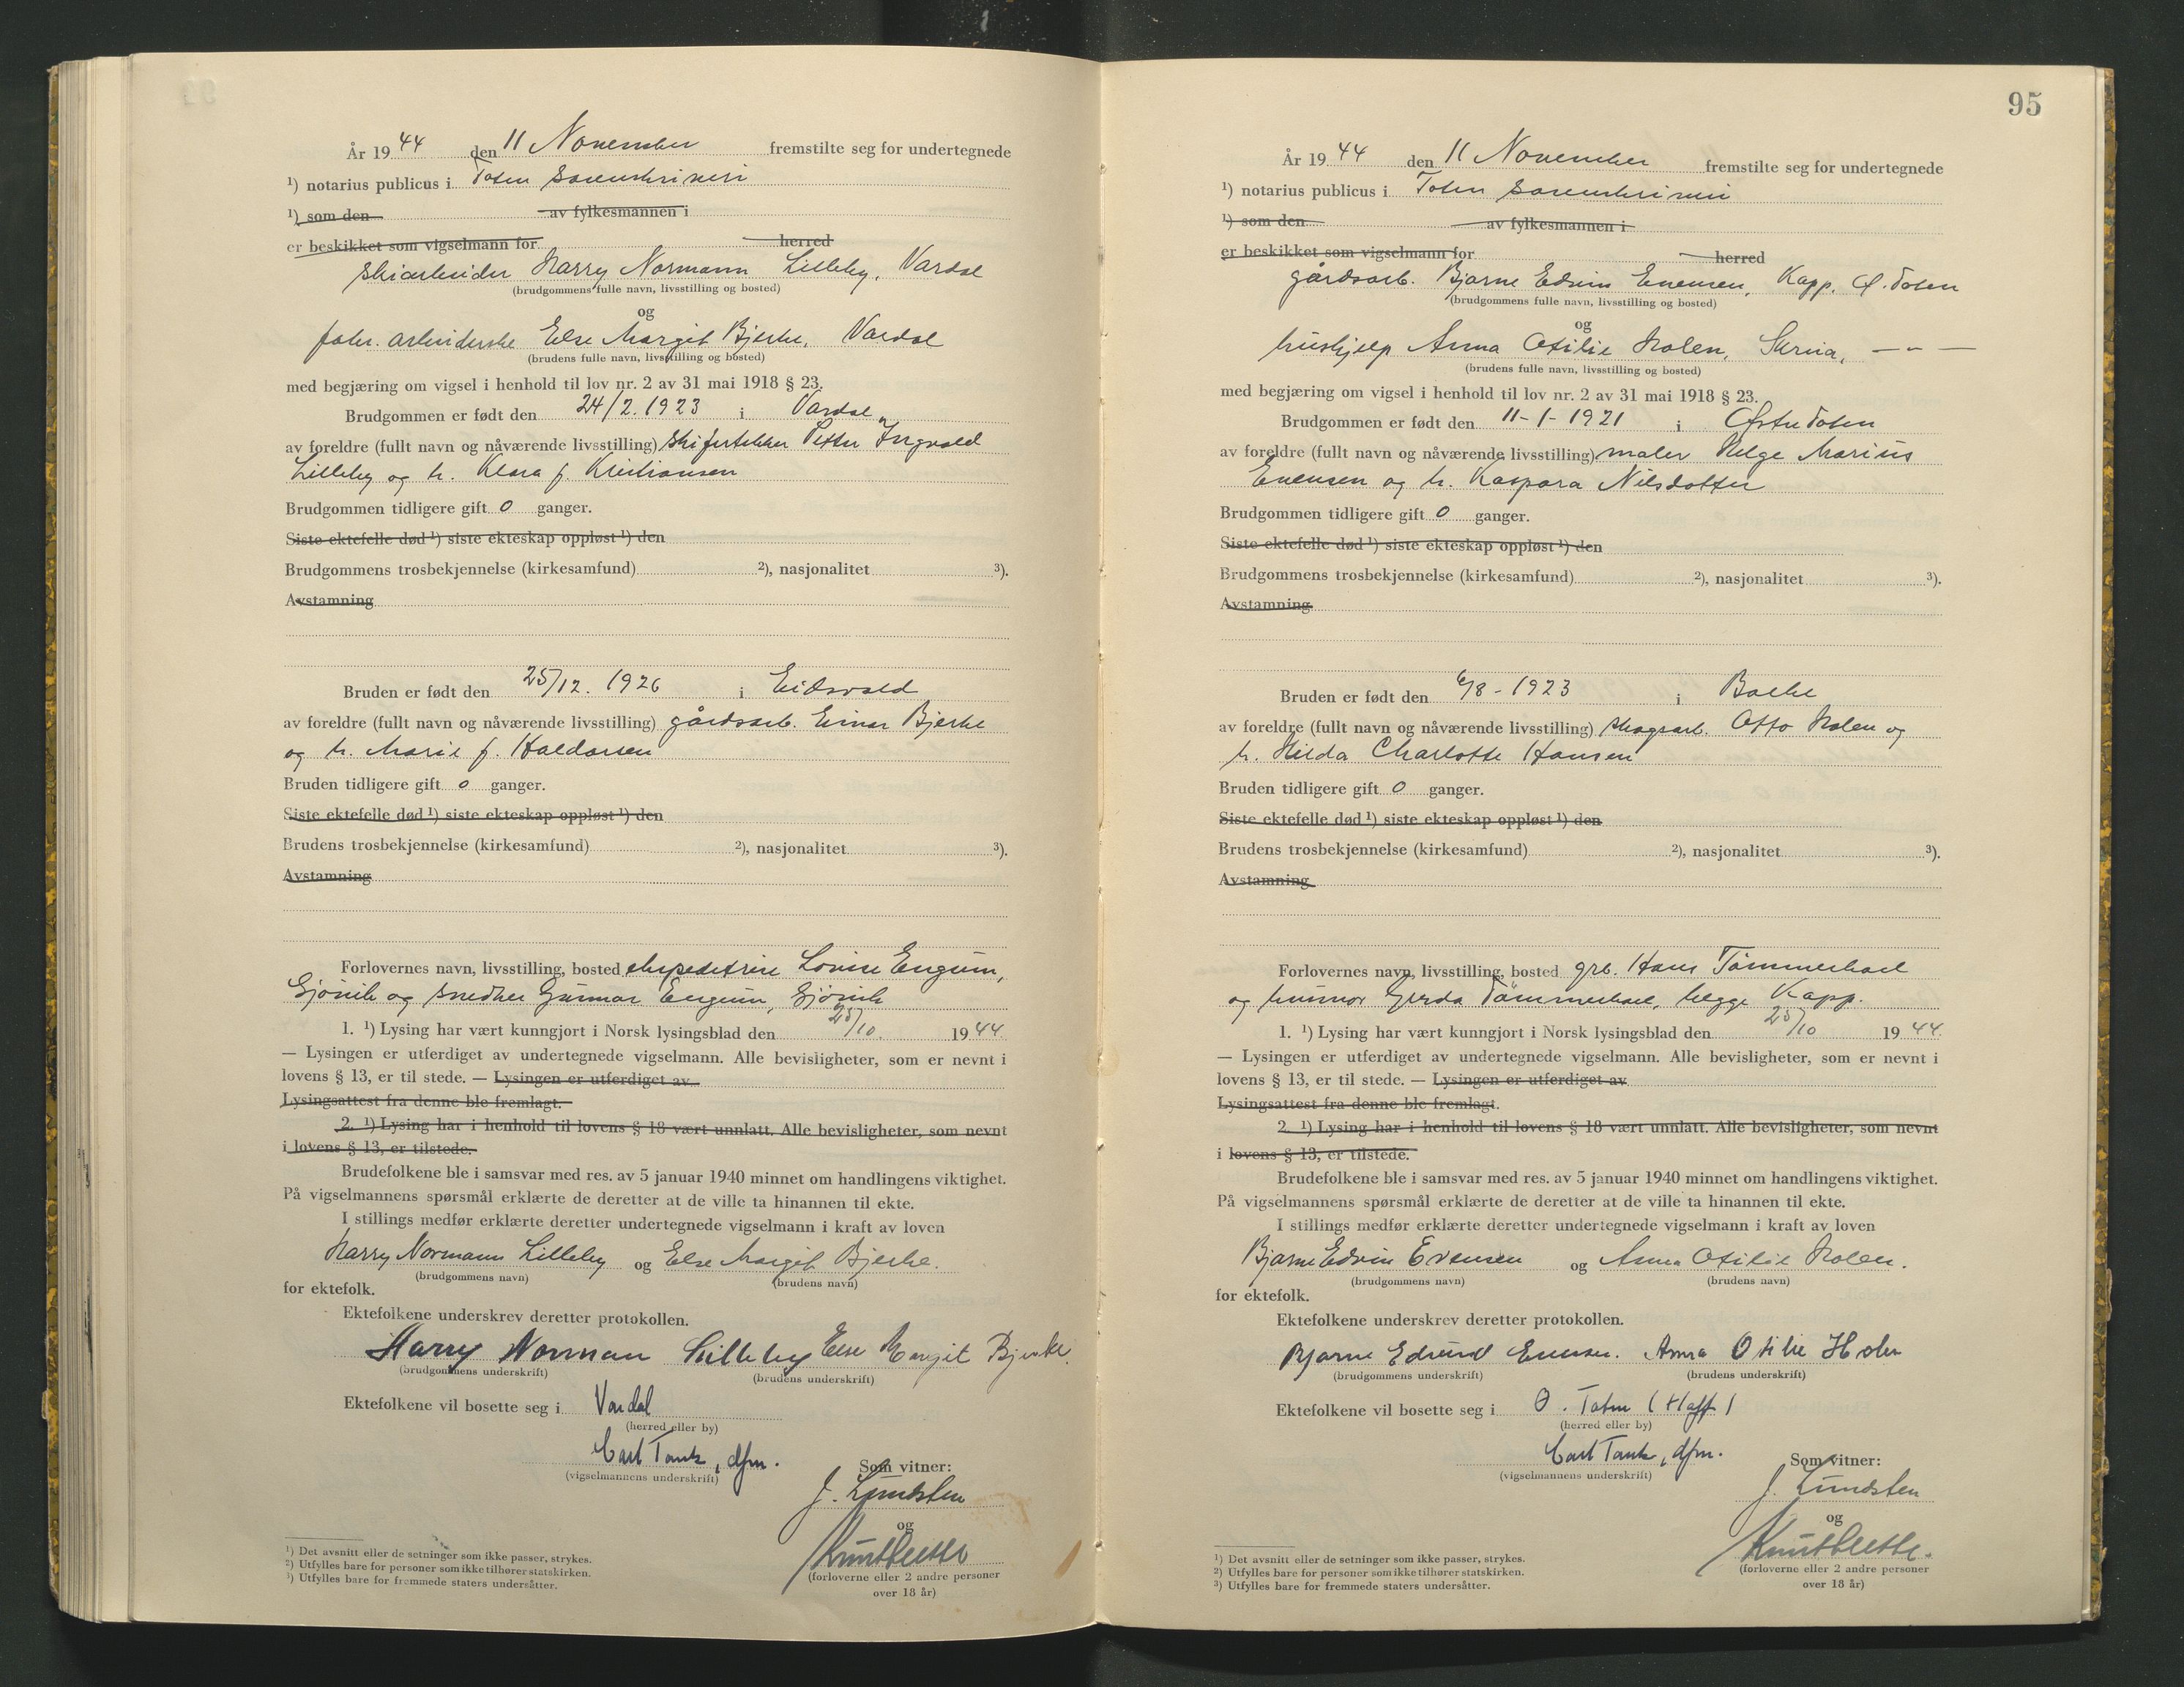 År 1944 den 11 November fremstilte seg for undertegnede
¹) notarius publicus i Toten sorenskriveri
¹) som den av fylkesmannen i
er beskikket som vigselmann for herred
skiarbeider Harry Normann Lilleby, Vardal
(brudgommens fulle navn, livsstilling og bosted)
og
fabr. arbeiderske Else Margit Bjerke, Vardal
(brudens fulle navn, livsstilling og bosted)
med begjæring om vigsel i henhold til lov nr. 2 av 31 mai 1918 § 23.
Brudgommen er født den 24/2. 1923 i Vardal
av foreldre (fullt navn og nåværende livsstilling) skifertekker Petter Ingvald
Lilleby og h. Klara f. Kristiansen
Brudgommen tidligere gift 0 ganger.
Siste ektefelle død ¹) siste ekteskap oppløst ¹) den
Brudgommens trosbekjennelse (kirkesamfund) ²), nasjonalitet ³).
Avstamning
Bruden er født den 25/12. 1926 i Eidsvold
av foreldre (fullt navn og nåværende livsstilling) gårdsarb. Einar Bjerke
og h. Marie f. Haldorsen
Bruden tidligere gift 0 ganger.
Siste ektefelle død ¹) siste ekteskap oppløst ¹) den
Brudens trosbekjennelse (kirkesamfund) ²), nasjonalitet ³).
Avstamning
Forlovernes navn, livsstilling, bosted ekspeditrise Lovise Engum,
Gjövik og snedker Gunnar Engum, Gjövik
1. ¹) Lysing har vært kunngjort i Norsk lysingsblad den 25/10. 1944.
— Lysingen er utferdiget av undertegnede vigselmann. Alle bevisligheter, som er nevnt i
lovens § 13, er til stede. — Lysingen er utferdiget av
Lysingsattest fra denne ble fremlagt.
2. ¹) Lysing har i henhold til lovens § 18 vært unnlatt. Alle bevisligheter, som nevnt
i lovens § 13, er tilstede.
Brudefolkene ble i samsvar med res. av 5 januar 1940 minnet om handlingens viktighet.
På vigselmannens spørsmål erklærte de deretter at de ville ta hinannen til ekte.
I stillings medfør erklærte deretter undertegnede vigselmann i kraft av loven
Harry Normann Lilleby og Else Margit Bjerke.
(brudgommens navn) (brudens navn)
for ektefolk.
Ektefolkene underskrev deretter protokollen.
Harry Norman Lilleby Else Margit Bjerke.
(brudgommens underskrift) (brudens underskrift)
Ektefolkene vil bosette seg i Vardal
(herred eller by)
Carl Tank, dfm.
(vigselmannens underskrift)
Som vitner:
J. Lundsten
og
(forloverne eller 2 andre personer
over 18 år)
¹) Det avsnitt eller de setninger som ikke passer, strykes.
²) Utfylles bare for personer som ikke tilhører statskirken.
³) Utfylles bare for fremmede staters undersåtter.
95
År 1944 den 11 November fremstilte seg for undertegnede
¹) notarius publicus i Toten sorenskriveri
¹) som den av fylkesmannen i
er beskikket som vigselmann for herred
gårdsarb. Bjarne Edvin Evensen, Kapp, Ø. Toten
(brudgommens fulle navn, livsstilling og bosted)
og
hushjelp Anna Otilie Holen, Skreia, — " —
(brudens fulle navn, livsstilling og bosted)
med begjæring om vigsel i henhold til lov nr. 2 av 31 mai 1918 § 23.
Brudgommen er født den 11-1-1921 i Østre Toten
av foreldre (fullt navn og nåværende livsstilling) maler Helge Marius
Evensen og h. Kaspara Nilsdotter
Brudgommen tidligere gift 0 ganger.
Siste ektefelle død ¹) siste ekteskap oppløst ¹) den
Brudgommens trosbekjennelse (kirkesamfund) ²), nasjonalitet ³).
Avstamning
Bruden er født den 6/8-1923 i Balke
av foreldre (fullt navn og nåværende livsstilling) skogsarb. Otto Holen og
h. Hilda Charlotte Hansen
Bruden tidligere gift 0 ganger.
Siste ektefelle død ¹) siste ekteskap oppløst ¹) den
Brudens trosbekjennelse (kirkesamfund) ²), nasjonalitet ³).
Avstamning
Forlovernes navn, livsstilling, bosted grb. Hans Tömmerhoel
og husmor Gerda Tömmerhoel, begge Kapp.
1. ¹) Lysing har vært kunngjort i Norsk lysingsblad den 25/10 1944.
— Lysingen er utferdiget av undertegnede vigselmann. Alle bevisligheter, som er nevnt i
lovens § 13, er til stede. — Lysingen er utferdiget av
Lysingsattest fra denne ble fremlagt.
2. ¹) Lysing har i henhold til lovens § 18 vært unnlatt. Alle bevisligheter, som nevnt
i lovens § 13, er tilstede.
Brudefolkene ble i samsvar med res. av 5 januar 1940 minnet om handlingens viktighet.
På vigselmannens spørsmål erklærte de deretter at de ville ta hinannen til ekte.
I stillings medfør erklærte deretter undertegnede vigselmann i kraft av loven
Bjarne Edvin Evensen og Anna Otilie Holen.
(brudgommens navn) (brudens navn)
for ektefolk.
Ektefolkene underskrev deretter protokollen.
Bjarne Edvind Evensen. Anna Otilie Holen
(brudgommens underskrift) (brudens underskrift)
Ektefolkene vil bosette seg i Ø. Toten (Hoff)
(herred eller by)
Carl Tank, dfm.
(vigselmannens underskrift)
Som vitner:
J. Lundsten
og
(forloverne eller 2 andre personer
over 18 år)
¹) Det avsnitt eller de setninger som ikke passer, strykes.
²) Utfylles bare for personer som ikke tilhører statskirken.
³) Utfylles bare for fremmede staters undersåtter.